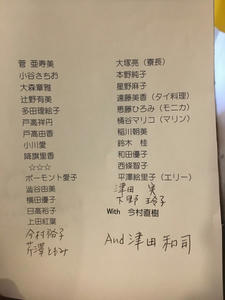 菅 亜寿美
小谷さちお
大森章雅
辻野有美
多田理絵子
戸高祥円
戸高由香
小川愛
鵤旗里香
☆☆☆
ボーモント愛子
澁谷由美
横田優子
日高裕子
上田紅葉
今村裕子
芹澤ともみ
大塚亮（寮長）
本野純子
星野麻子
遠藤美香（タイ料理）
恵藤ひろみ（モニカ）
桶谷マリコ（マリン）
稲川朝美
鈴木 桂
和田優子
西條智子
平澤絵里子（エリー）
津田 実
下野 玲子
With 今村直樹
And 津田 和司